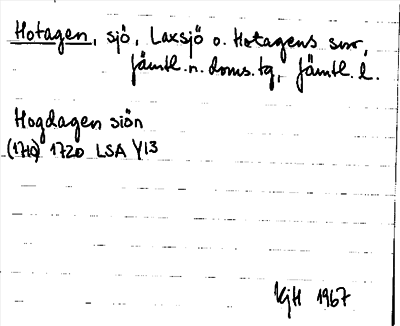 Hotagen, sjö, Laxsjö o. Hotagens snr,
Jämtl. n. doms. tg, Jämtl. l.
Hogdagen siön
(1719) 1720 LSA Y13
KjH 1967